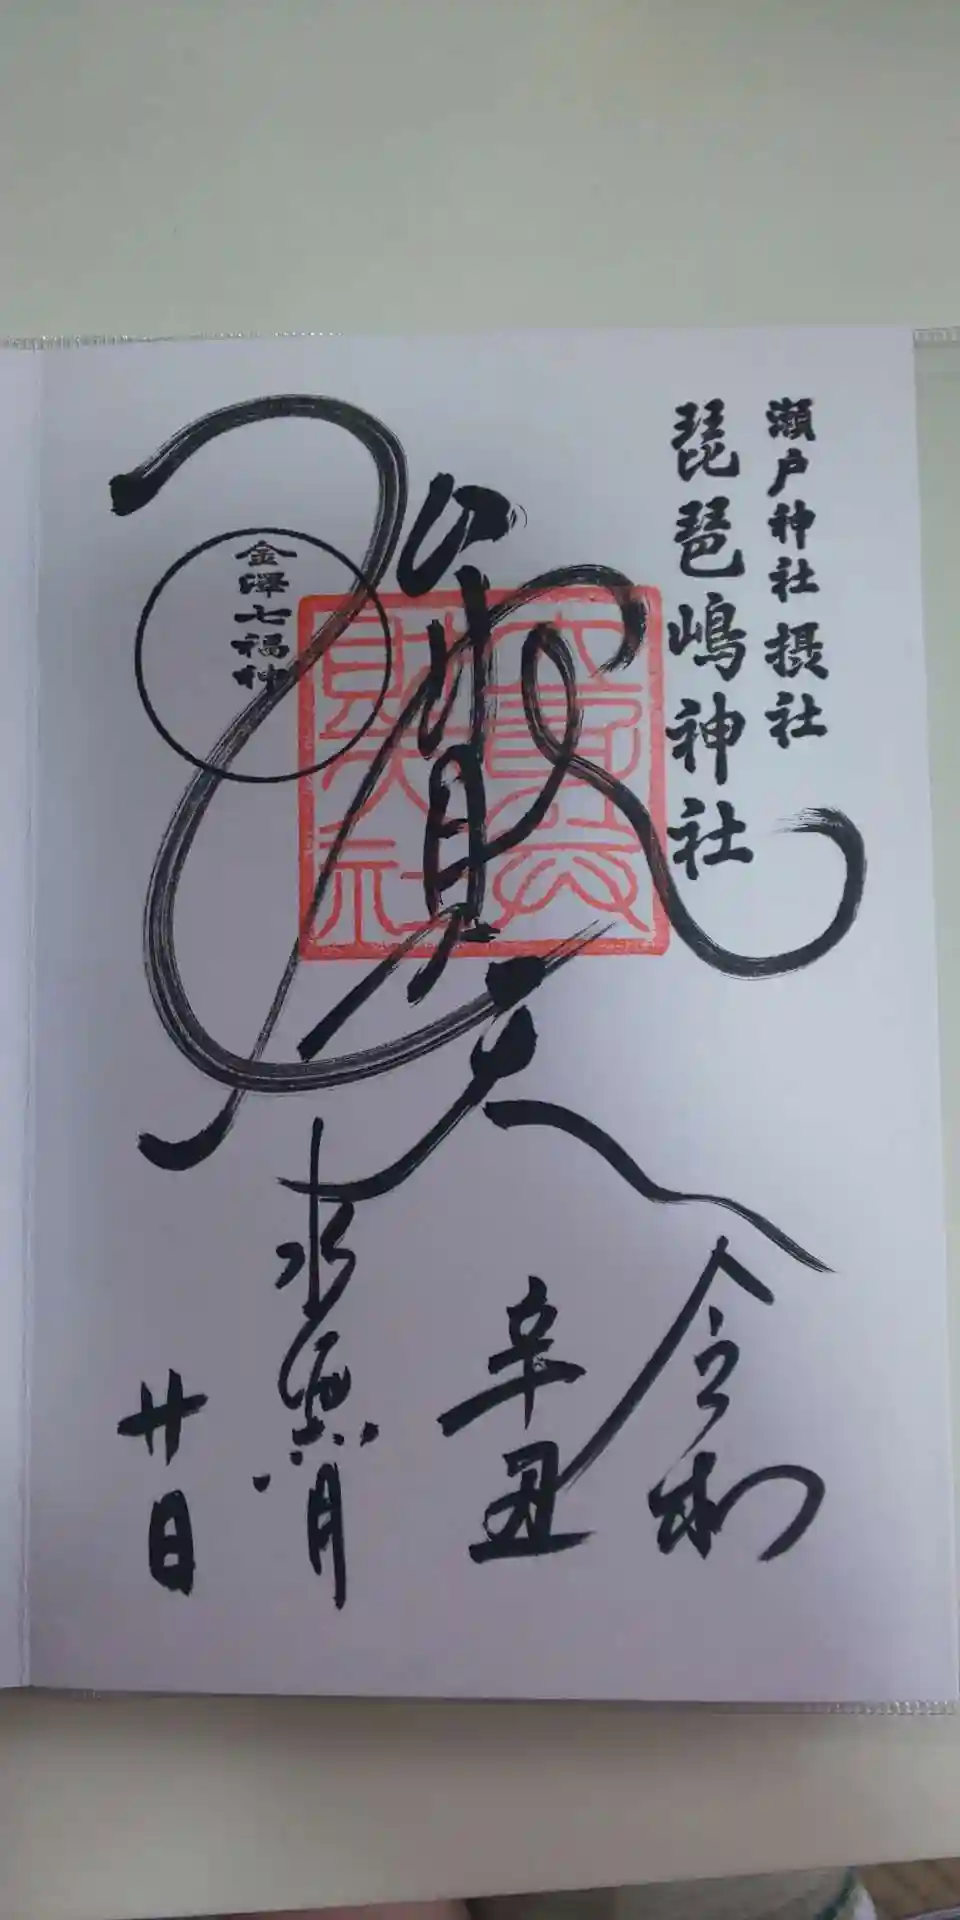 瀬戸神社摂社
琵琶嶋神社
金澤七福神
令和
辛丑
水無月
廿日